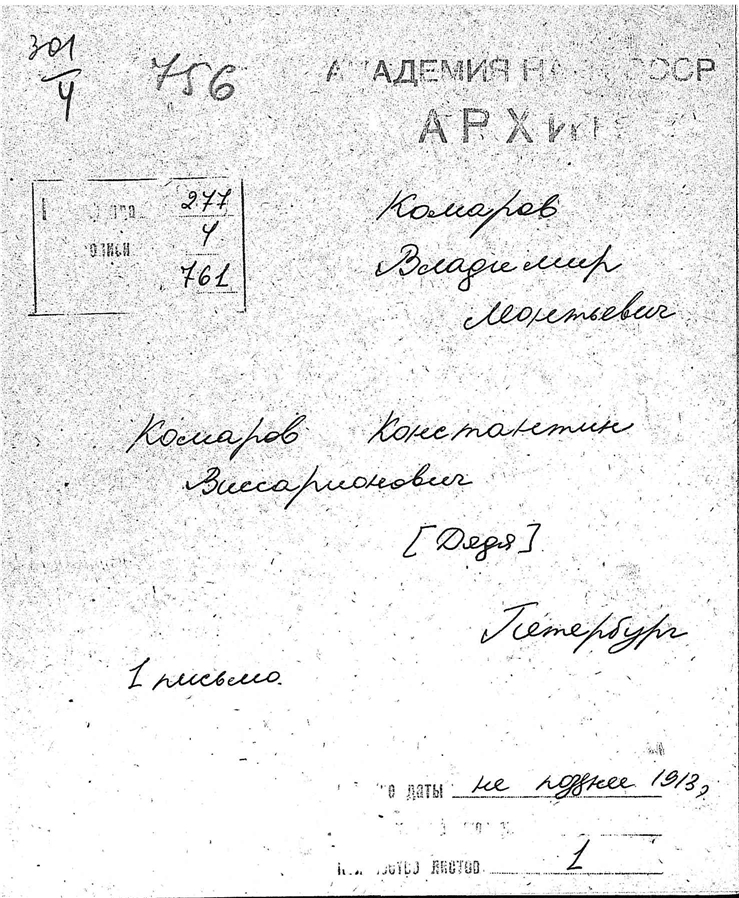 301
4
756
АКАДЕМИЯ НАУК СССР
АРХИВ
277
4
описи
761
Комаров
Владимир
Леонтьевич
Комаров Константин
Виссарионович
[Дядя]
Петербург
1 письмо.
даты не позднее 1913,
листов 1